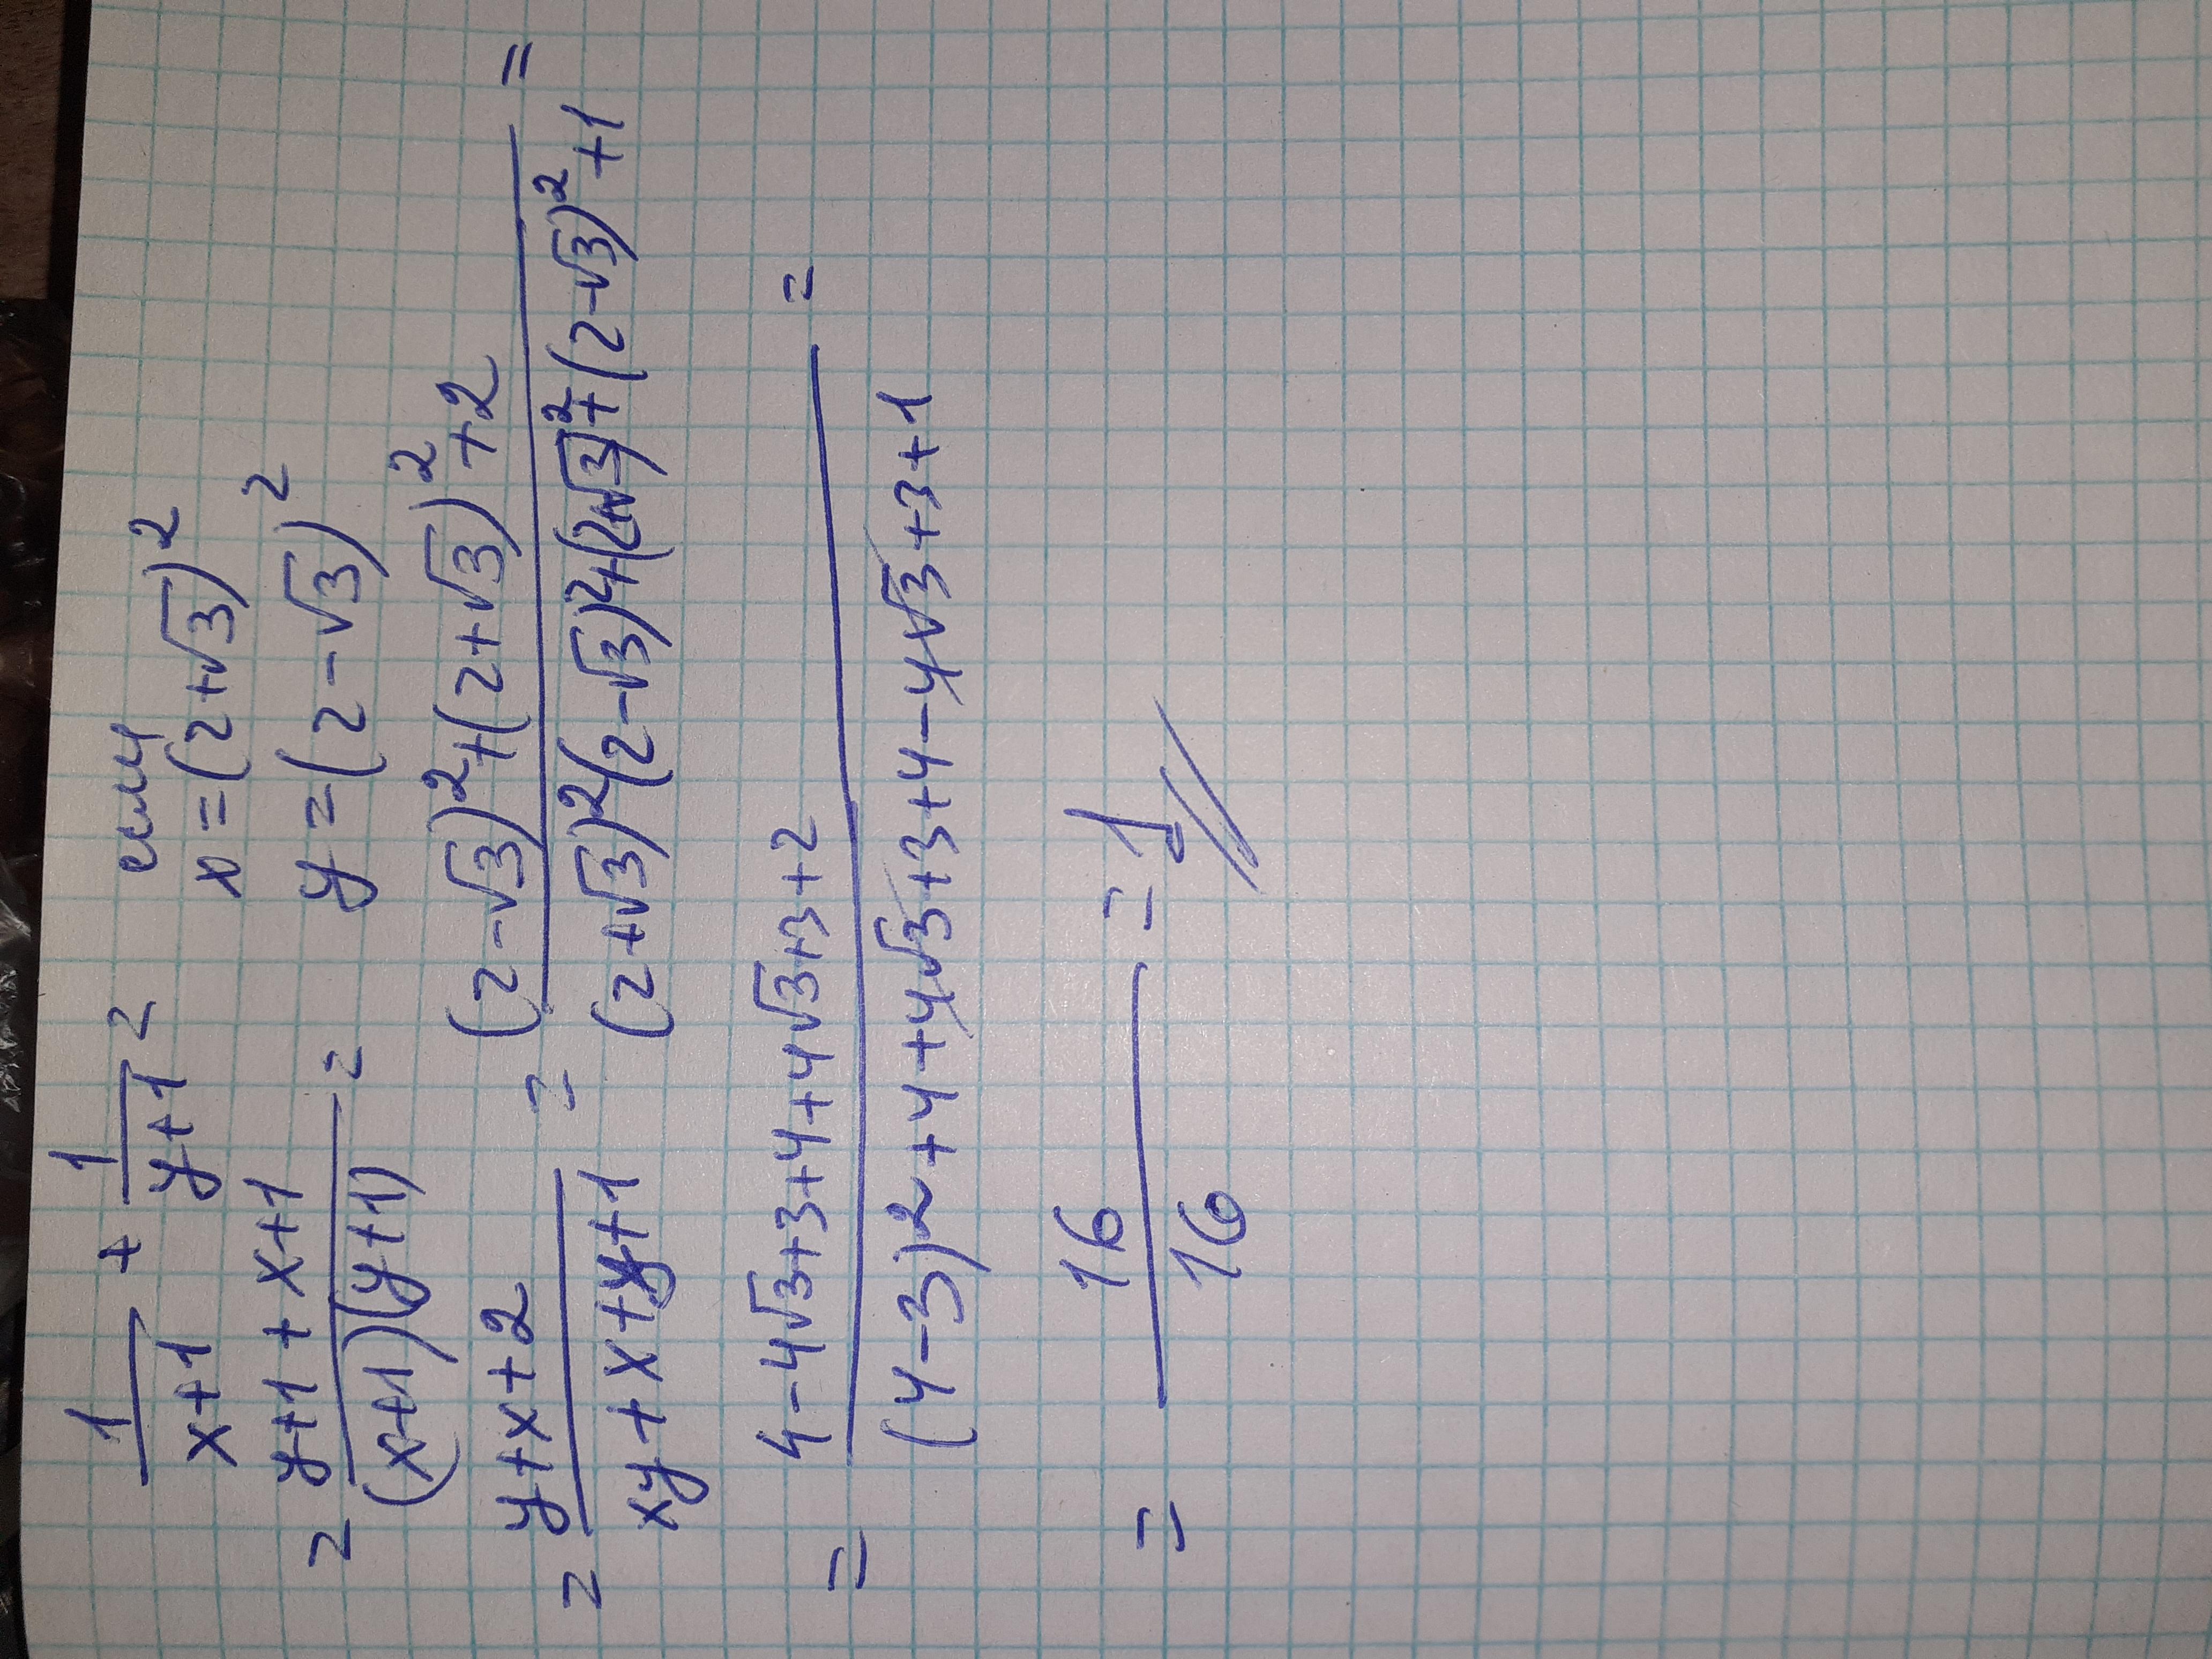 1/(x+1) + 1/(y+1) = если
x=(2+√3)²
= (y+1+x+1)/((x+1)(y+1)) = y=(2-√3)²
= (y+x+2)/(xy+x+y+1) = ((2-√3)²+(2+√3)²+2)/((2+√3)²(2-√3)²+(2+√3)²+(2-√3)²+1) =
= (4-4√3+3+4+4√3+3+2)/((4-3)²+4+4√3+3+4-4√3+3+1) =
= 16/16 = 1